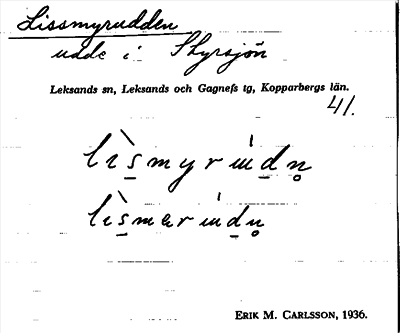 Lissmyrudden
udde i Styrsjön
Leksands sn, Leksands och Gagnefs tg, Kopparbergs län.
41.
ERIK M. CARLSSON, 1936.